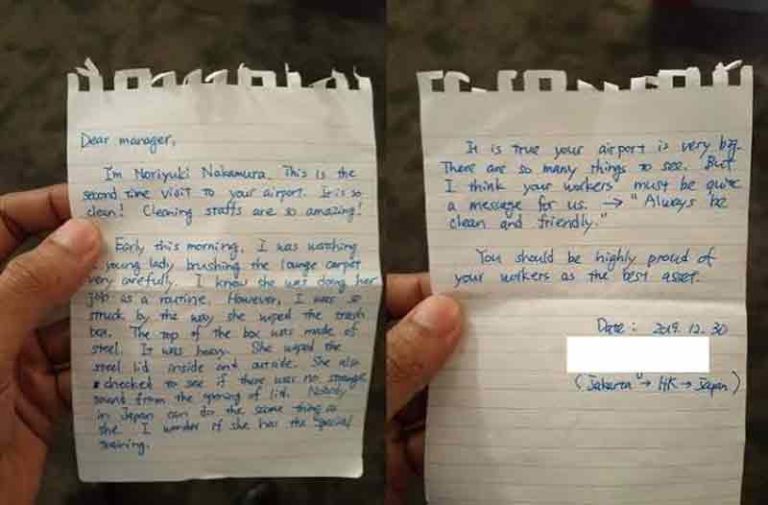 Dear manager,
I'm Noriyuki Nakamura. This is the
second time visit to your airport. It is so
clean! Cleaning staffs are so amazing!
Early this morning, I was watching
a young lady brushing the lounge carpet
very carefully. I know she was doing her
job as a routine. However, I was so
struck by the way she wiped the trash
box. The top of the box was made of
steel. It was heavy. She wiped the
steel lid inside and outside. She also
checked to see if there was no strange
sound from the opening of lid. Nobody
in Japan can do the same thing as
she. I wonder if she has the special
training.
It is true your airport is very big.
There are so many things to see. But
I think your workers must be quite
a message for us. → "Always be
clean and friendly."
You should be highly proud of
your workers as the best asset.
Date: 2019. 12. 30
(Jakarta → HK → Japan)